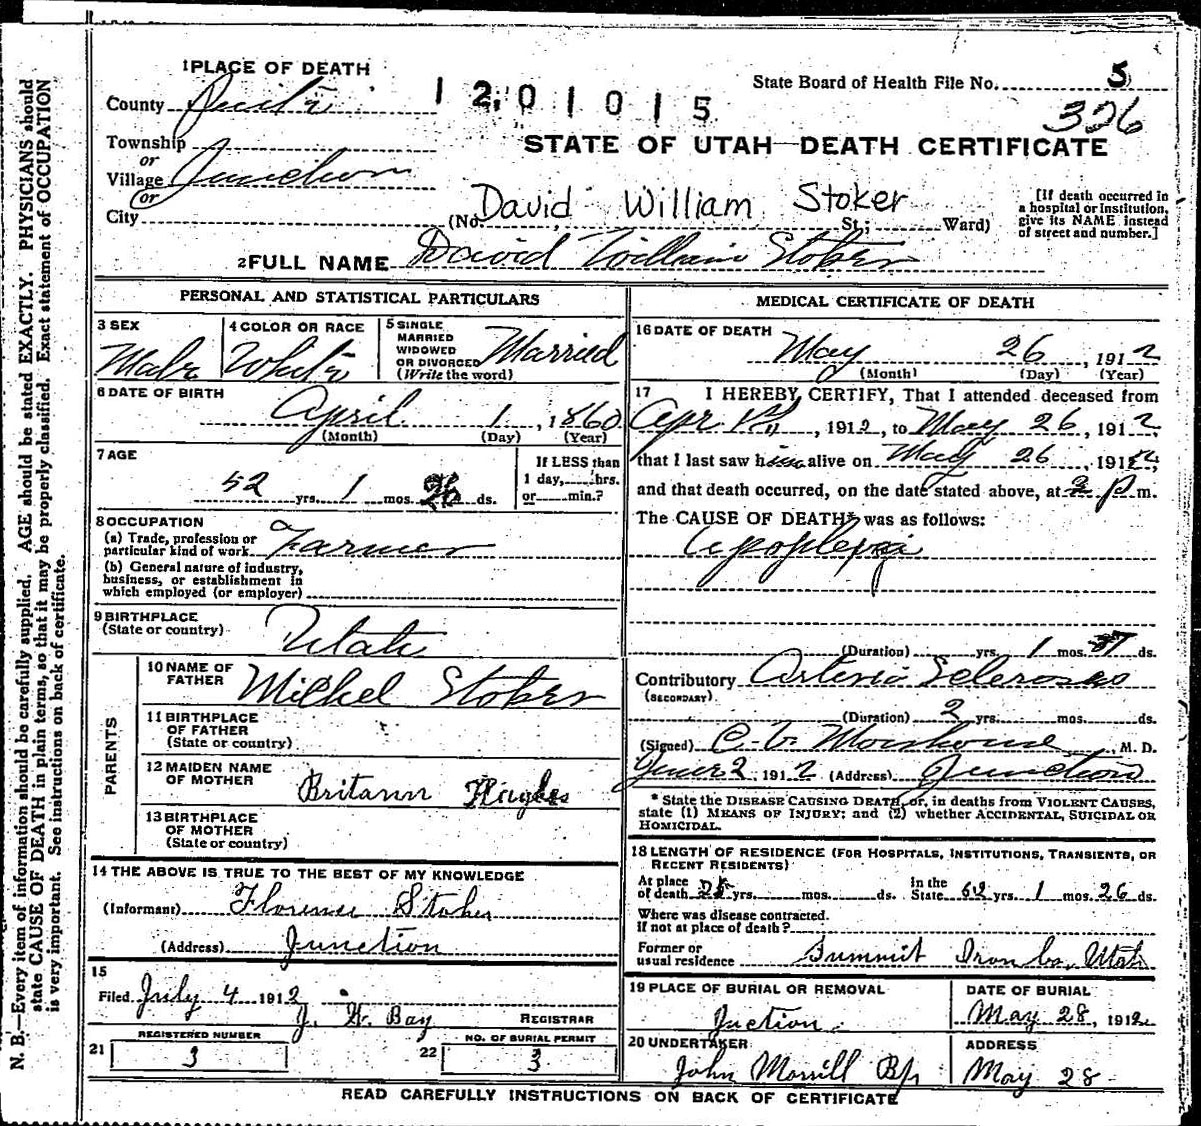 1 PLACE OF DEATH
State Board of Health File No. 5
County Piute
1201015
326
Township
or
Village Junction
(or
City
STATE OF UTAH—DEATH CERTIFICATE
David William Stoker
(No. St.; Ward)
[If death occurred in
a hospital or institution,
give its NAME instead
of street and number.]
2 FULL NAME David William Stoker
PERSONAL AND STATISTICAL PARTICULARS
3 SEX
Male
4 COLOR OR RACE
White
5 SINGLE
MARRIED
WIDOWED
OR DIVORCED
(Write the word)
Married
6 DATE OF BIRTH
April 1, 1860
(Month) (Day) (Year)
7 AGE
52 yrs. 1 mos. 26 ds.
If LESS than
1 day, hrs.
or min.?
8 OCCUPATION
(a) Trade, profession or
particular kind of work Farmer
(b) General nature of industry,
business, or establishment in
which employed (or employer)
9 BIRTHPLACE
(State or country)
Utah
PARENTS
10 NAME OF
FATHER
Michel Stoker
11 BIRTHPLACE
OF FATHER
(State or country)
12 MAIDEN NAME
OF MOTHER
Britann Hughes
13 BIRTHPLACE
OF MOTHER
(State or country)
14 THE ABOVE IS TRUE TO THE BEST OF MY KNOWLEDGE
(Informant) Florence Stoker
(Address) Junction
15
Filed July 4 1912
J. W. Bay REGISTRAR
REGISTERED NUMBER
21 3
NO. OF BURIAL PERMIT
22 3
MEDICAL CERTIFICATE OF DEATH
16 DATE OF DEATH
May 26, 1912
(Month) (Day) (Year)
17 I HEREBY CERTIFY, That I attended deceased from
Apr, 1912, to May 26, 1912,
that I last saw him alive on May 26, 1912,
and that death occurred, on the date stated above, at p.m.
The CAUSE OF DEATH* was as follows:
Apoplexi
(Duration) yrs. 1 mos. ds.
Contributory Arterio Sclerosis
(SECONDARY)
(Duration) 2 yrs. mos. ds.
(Signed) C. V. Morehouse, M. D.
June 2 1912 (Address) Junction
* State the DISEASE CAUSING DEATH, or, in deaths from VIOLENT CAUSES,
state (1) MEANS OF INJURY; and (2) whether ACCIDENTAL, SUICIDAL OR
HOMICIDAL.
18 LENGTH OF RESIDENCE (FOR HOSPITALS, INSTITUTIONS, TRANSIENTS, OR
RECENT RESIDENTS)
At place
of death 25 yrs. mos. ds.
In the
State 52 yrs. 1 mos. 26 ds.
Where was disease contracted.
If not at place of death?
Former or
usual residence Summit Iron Co, Utah
19 PLACE OF BURIAL OR REMOVAL
Juction
DATE OF BURIAL
May 28, 1912
20 UNDERTAKER
John Morrill
ADDRESS
May 28
READ CAREFULLY INSTRUCTIONS ON BACK OF CERTIFICATE
N. B.—Every item of information should be carefully supplied. AGE should be stated EXACTLY. PHYSICIANS should
state CAUSE OF DEATH in plain terms, so that it may be properly classified. Exact statement of OCCUPATION
is very important. See instructions on back of certificate.